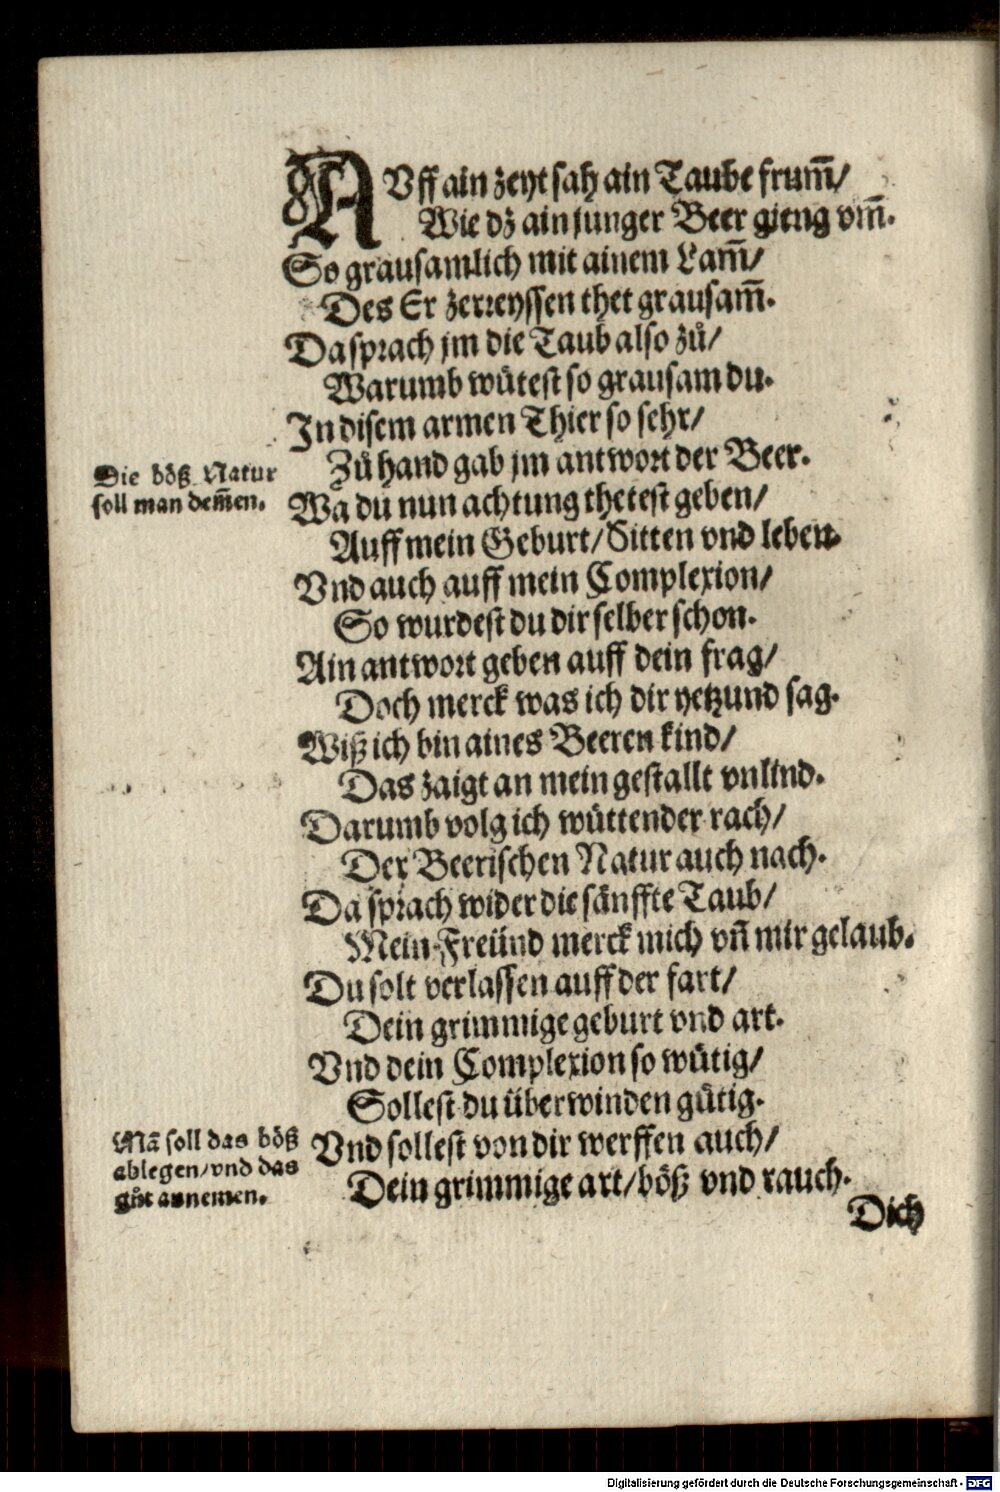 AUff ain zeyt sah ain Taube frum̄/
Wie dz ain junger Beer gieng vm̄.
So grausamlich mit ainem Lam̄/
Des Er zerreyssen thet grausam̄.
Da sprach jm die Taub also zů/
Warumb wůtest so grausam du.
In disem armen Thier so sehr/
Zů hand gab jm antwort der Beer.
Die böß Natur
soll man dem̄en.
Wa du nun achtung thetest geben/
Auff mein Geburt/Sitten vnd leben.
Vnd auch auff mein Complexion/
So wurdest du dir selber schon.
Ain antwort geben auff dein frag/
Doch merck was ich dir yetzund sag.
Wiß ich bin aines Beeren kind/
Das zaigt an mein gestallt vnlind.
Darumb volg ich wüttender rach/
Der Beerischen Natur auch nach.
Da sprach wider die sänffte Taub/
Mein Freünd merck mich vn̄ mir gelaub.
Du solt verlassen auff der fart/
Dein grimmige geburt vnd art.
Vnd dein Complexion so wůtig/
Sollest du überwinden gůtig.
Mā soll das böß
ablegen/vnd das
gůt annemen.
Vnd sollest von dir werffen auch/
Dein grimmige art/böß vnd rauch.
Dich
Digitalisierung gefördert durch die Deutsche Forschungsgemeinschaft - DFG